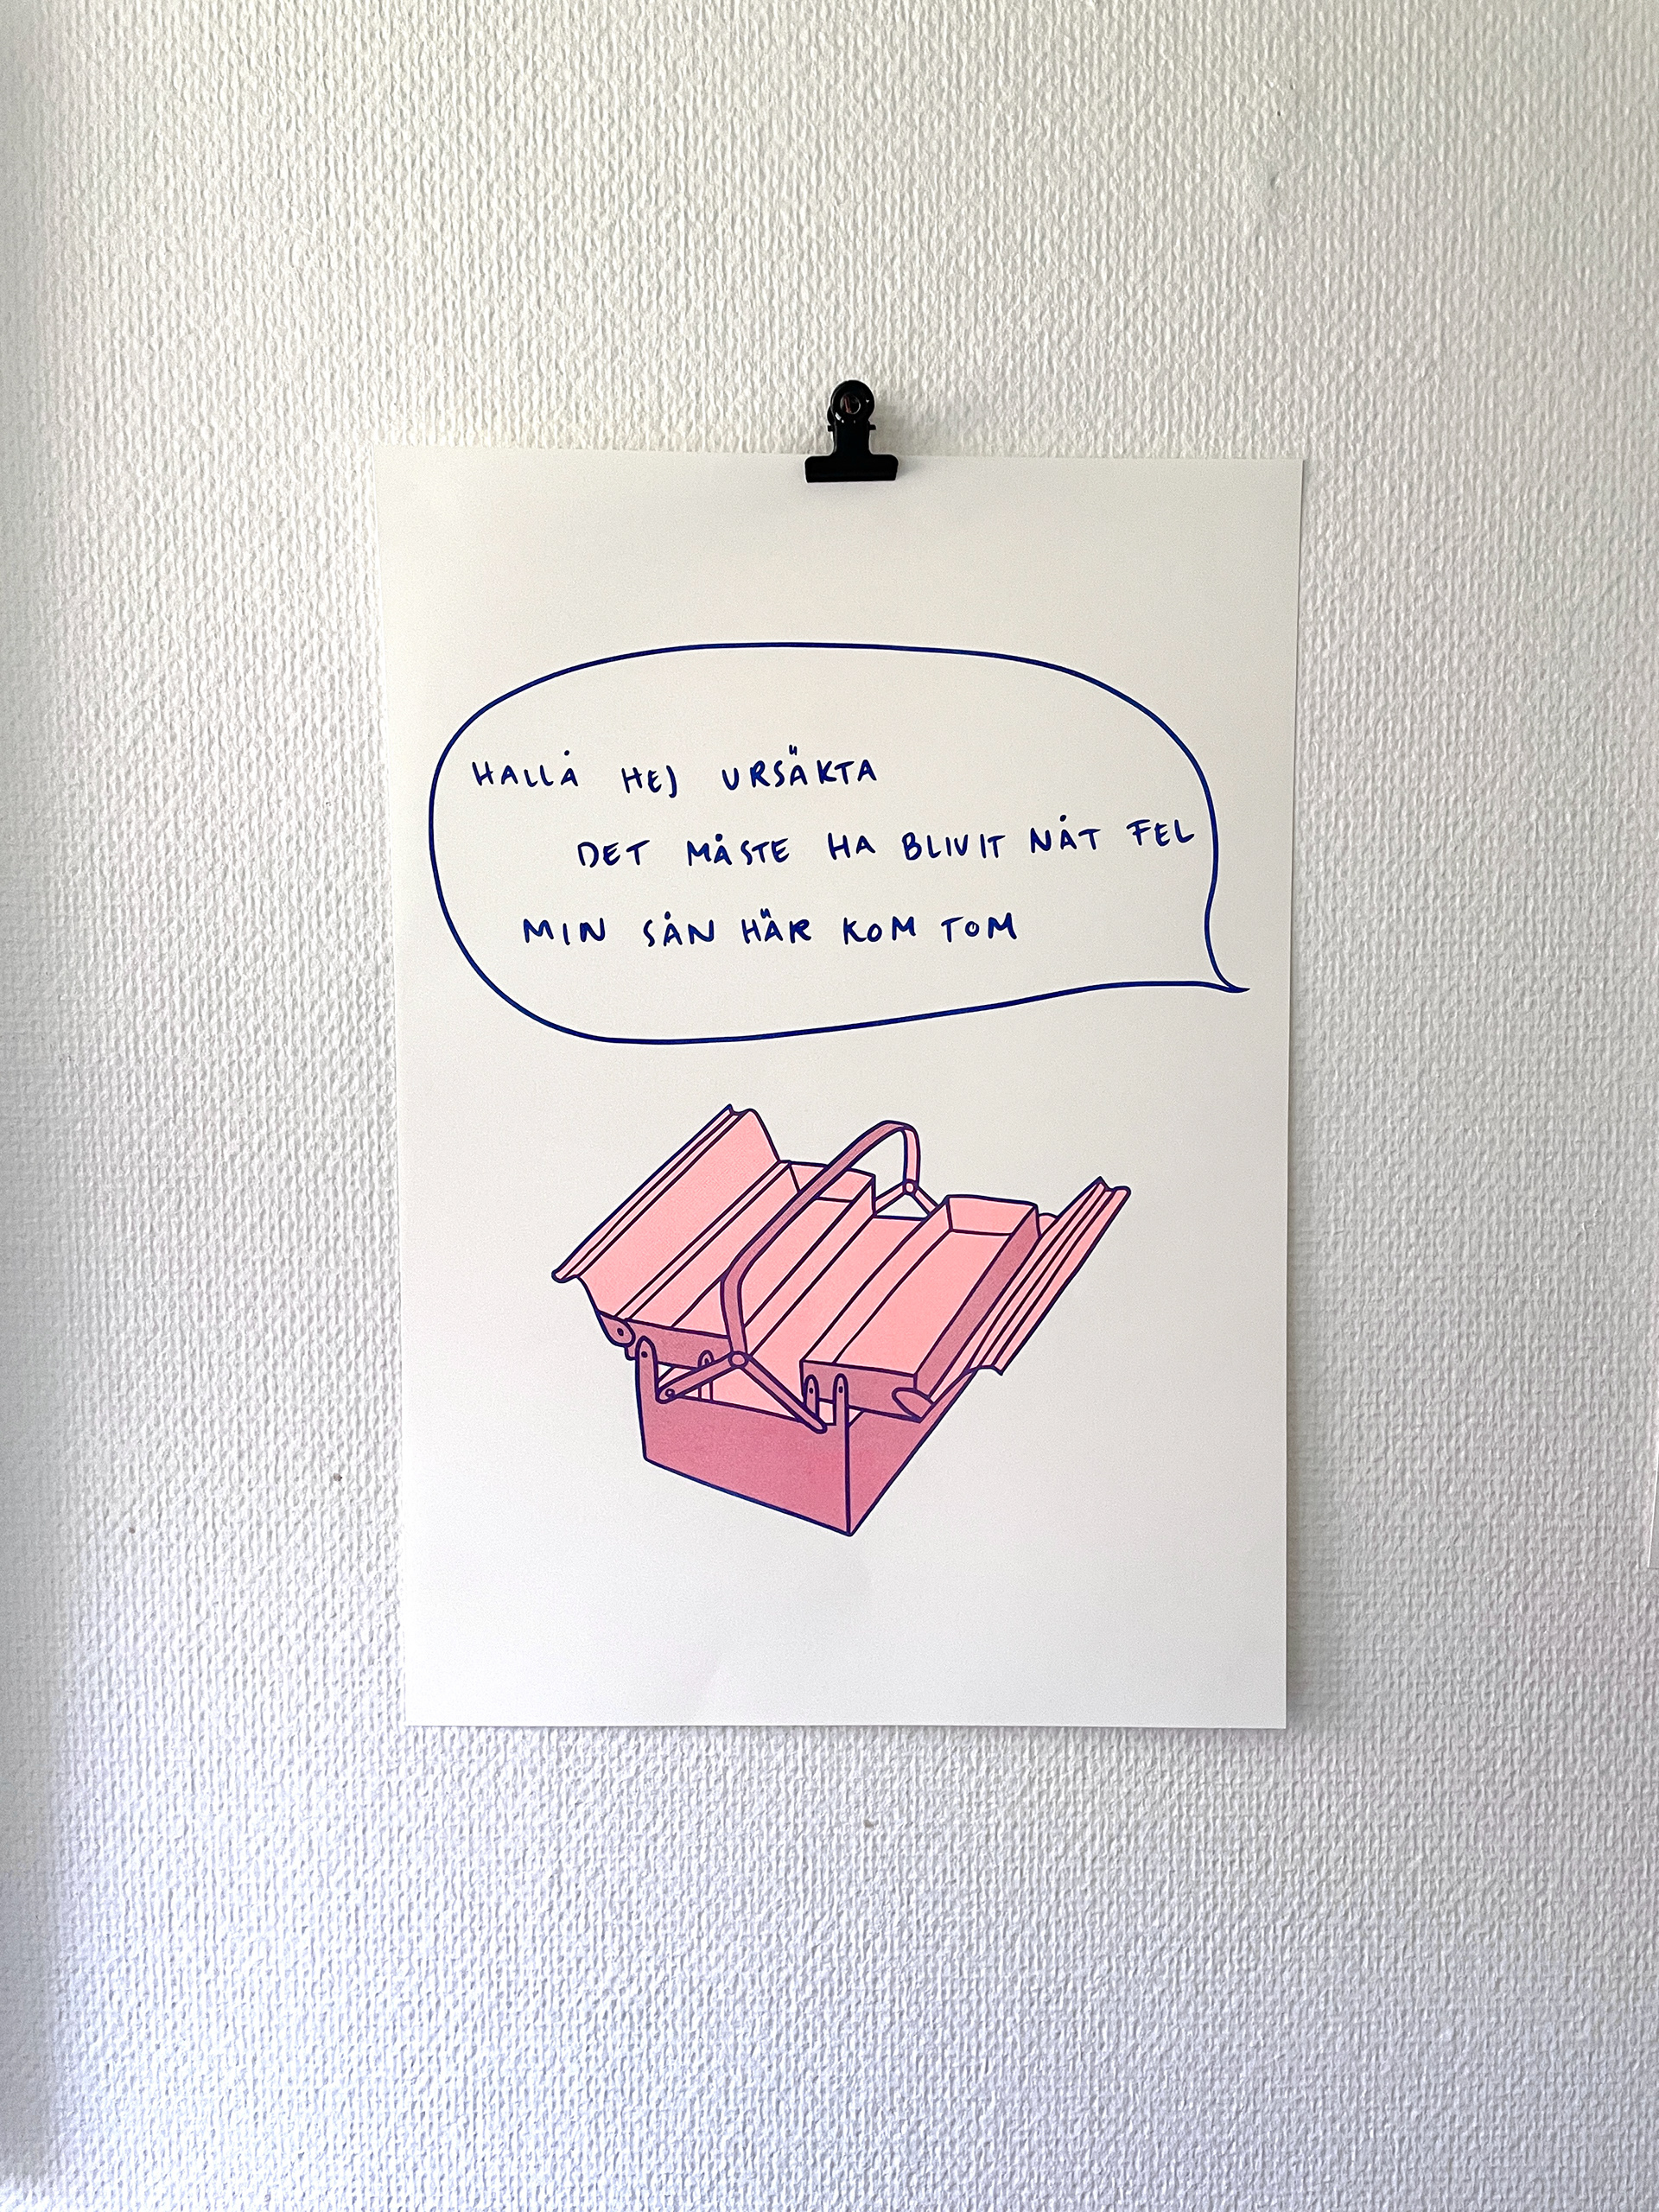 HALLÅ HEJ URSÄKTA
DET MÅSTE HA BLIVIT NÅT FEL
MIN SÅN HÄR KOM TOM